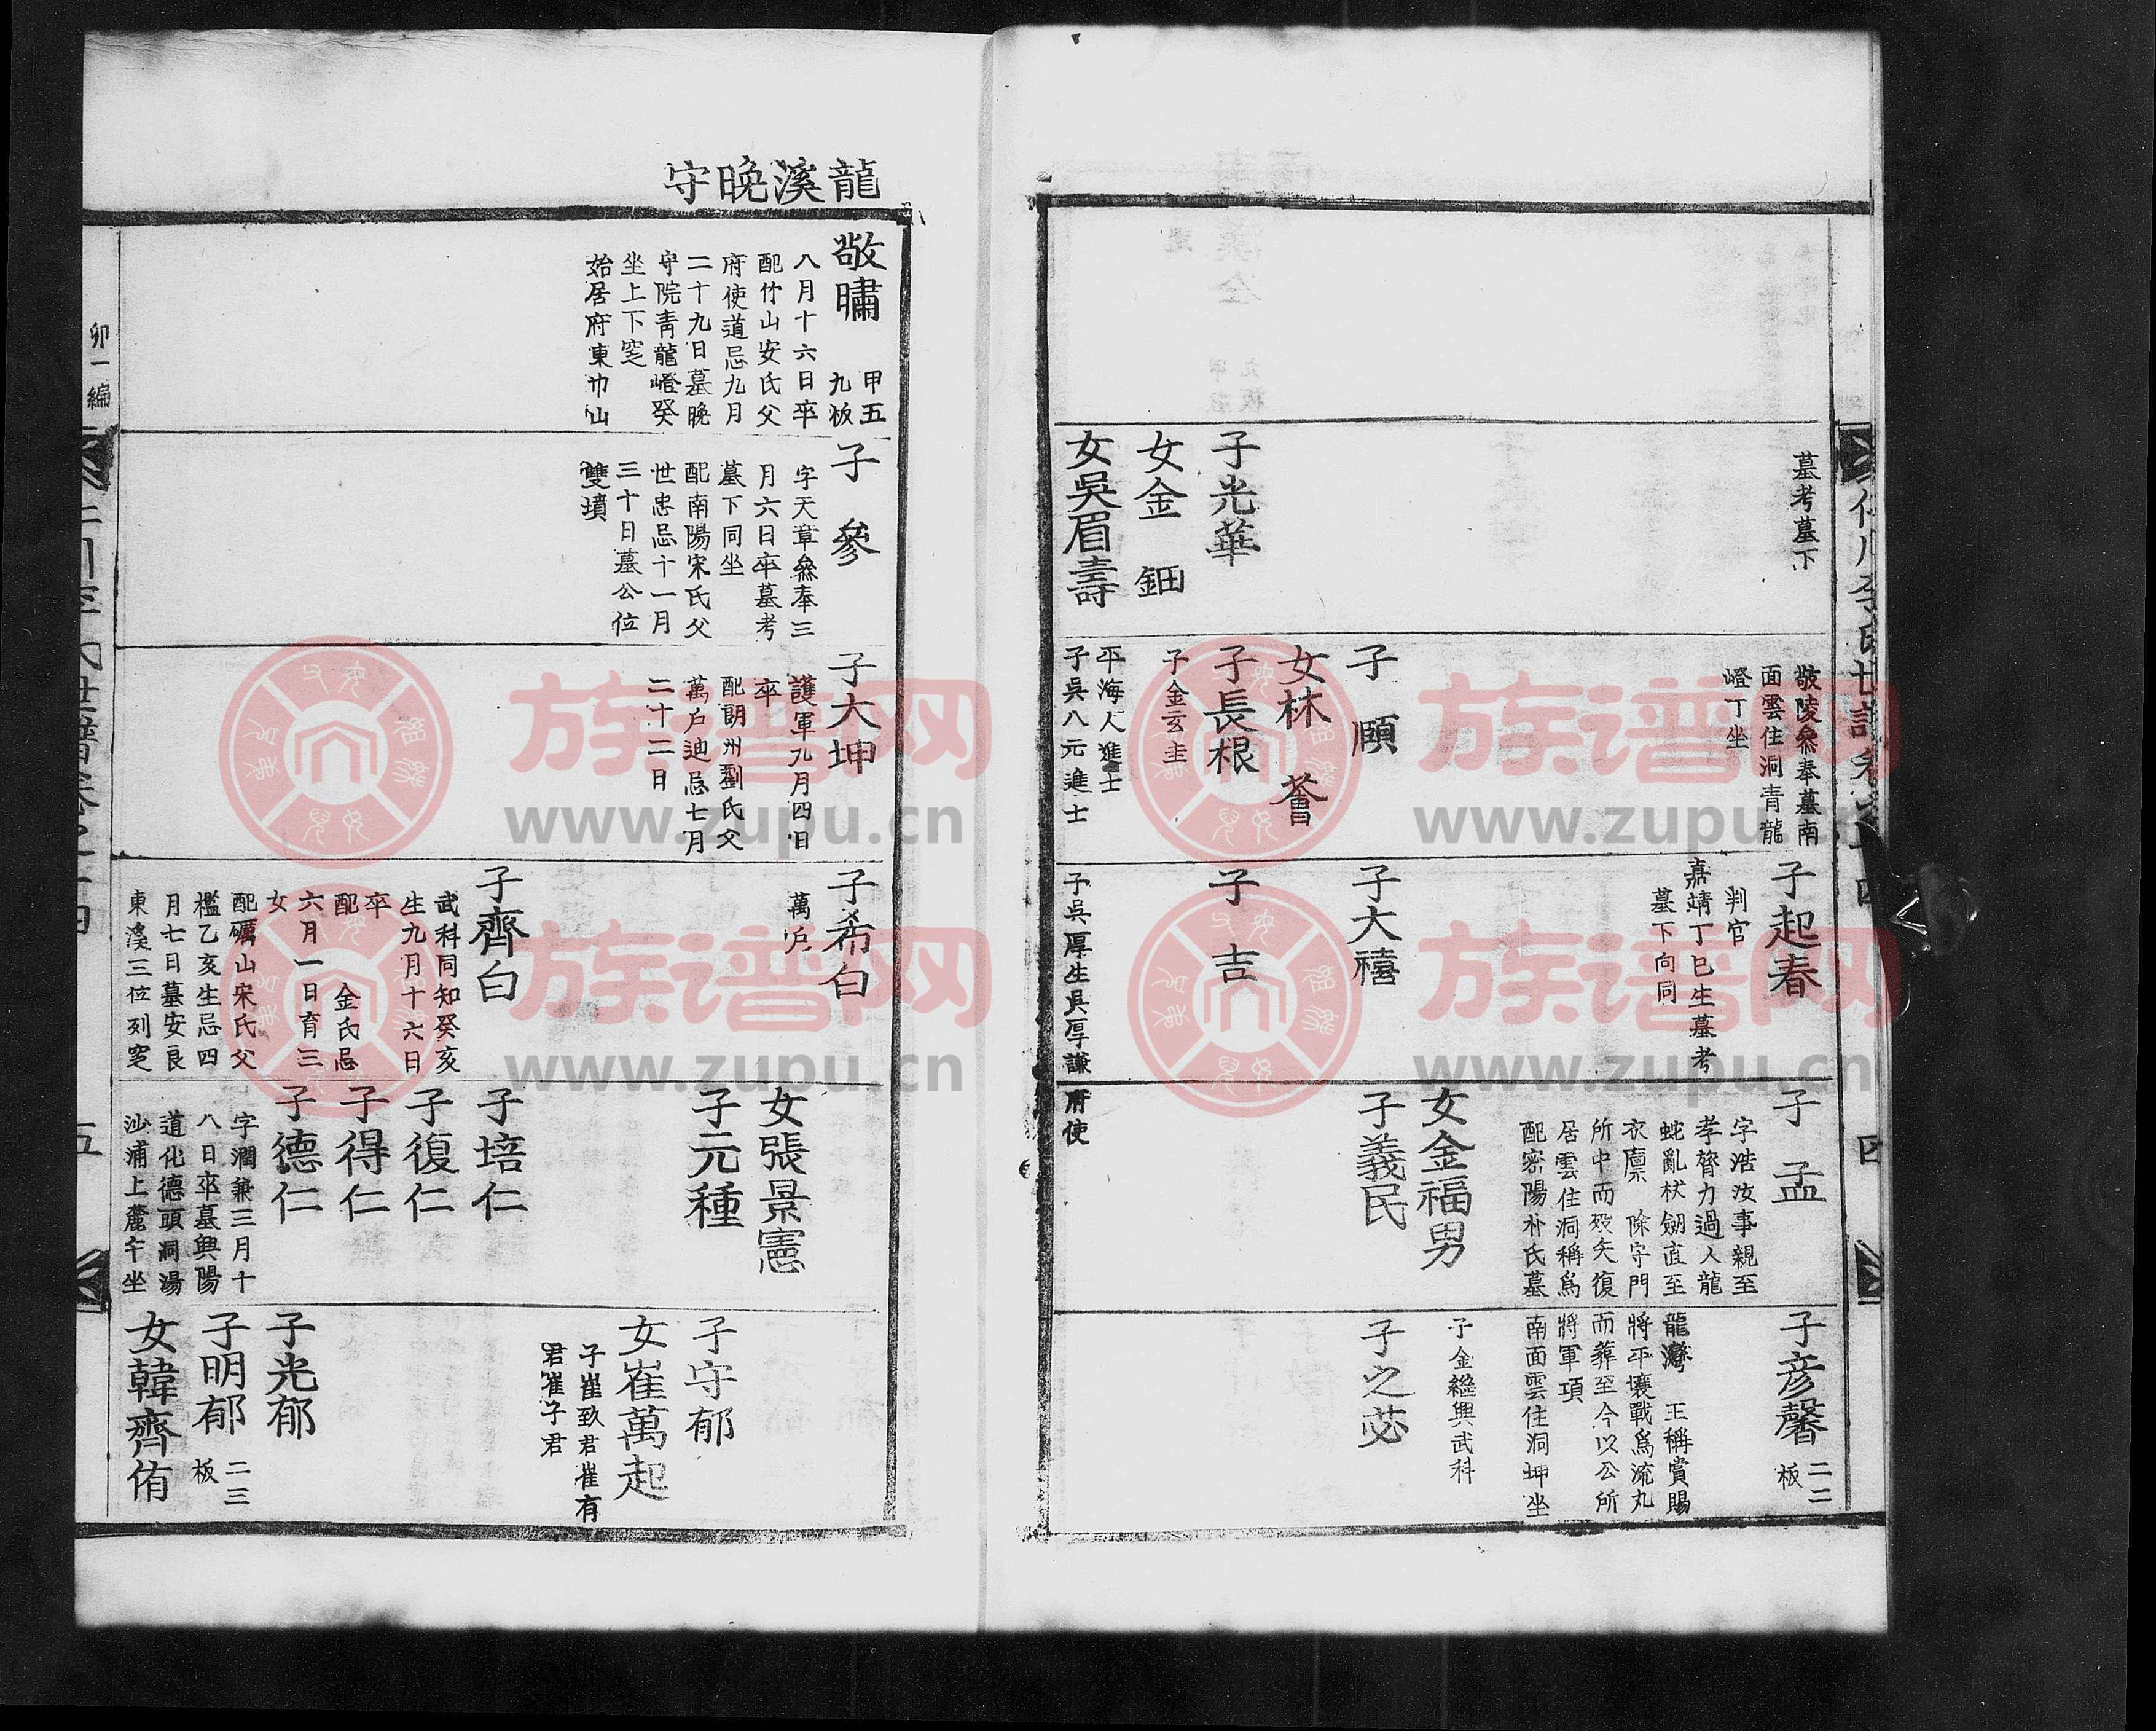 墓考墓下
子光華
女金鈿
女吳眉壽
敬陵叅奉墓南
面雲住洞青龍
嶝丁坐
子頤
女林薈
子長根
子金玄圭
平海人進士
子吳八元進士
子起春
判官
嘉靖丁巳生墓考
墓下向同
子大禧
子吉
子吳厚生吳厚謙
子孟
字浩汝事親至
孝膂力過人龍
蛇亂杖劒直至
衣廪 除守門
所中而歿矢復
居雲住洞稱爲
配密陽朴氏墓
女金福男
子義民
府使
子彦馨 二二板
龍灣 王稱賞賜
將平壤戰爲流丸
而葬至今以公所
將軍項
南面雲住洞坤坐
子金繼興武科
子之苾
四
龍溪晚守
敬嘯 甲五九板
八月十六日卒
配竹山安氏父
府使道忌九月
二十九日墓晚
守院青龍嶝癸
坐上下窆
始居府東巾山
子參
字天章叅奉三
月六日卒墓考
墓下同坐
配南陽宋氏父
世忠忌十一月
三十日墓公位
雙墳
子大坤
護軍九月四日
卒
配朗州劉氏父
萬戶迪忌七月
二十二日
子希白
萬戶
子齊白
武科同知癸亥
生九月十六日
卒
配 金氏忌
六月一日育三
女
配礪山宋氏父
檻乙亥生忌四
月七日墓安良
東溪三位列窆
女張景憲
子元種
子培仁
子復仁
子得仁
子德仁
字潤兼三月十
八日卒墓興陽
道化德頭洞湯
汕浦上麓午坐
子守郁
女崔萬起
子崔致君崔有
君崔子君
子光郁
子明郁 二三板
女韓齊侑
卯一編
五
族谱网
www.zupu.cn
族谱网
www.zupu.cn
族谱网
www.zupu.cn
族谱网
www.zupu.cn